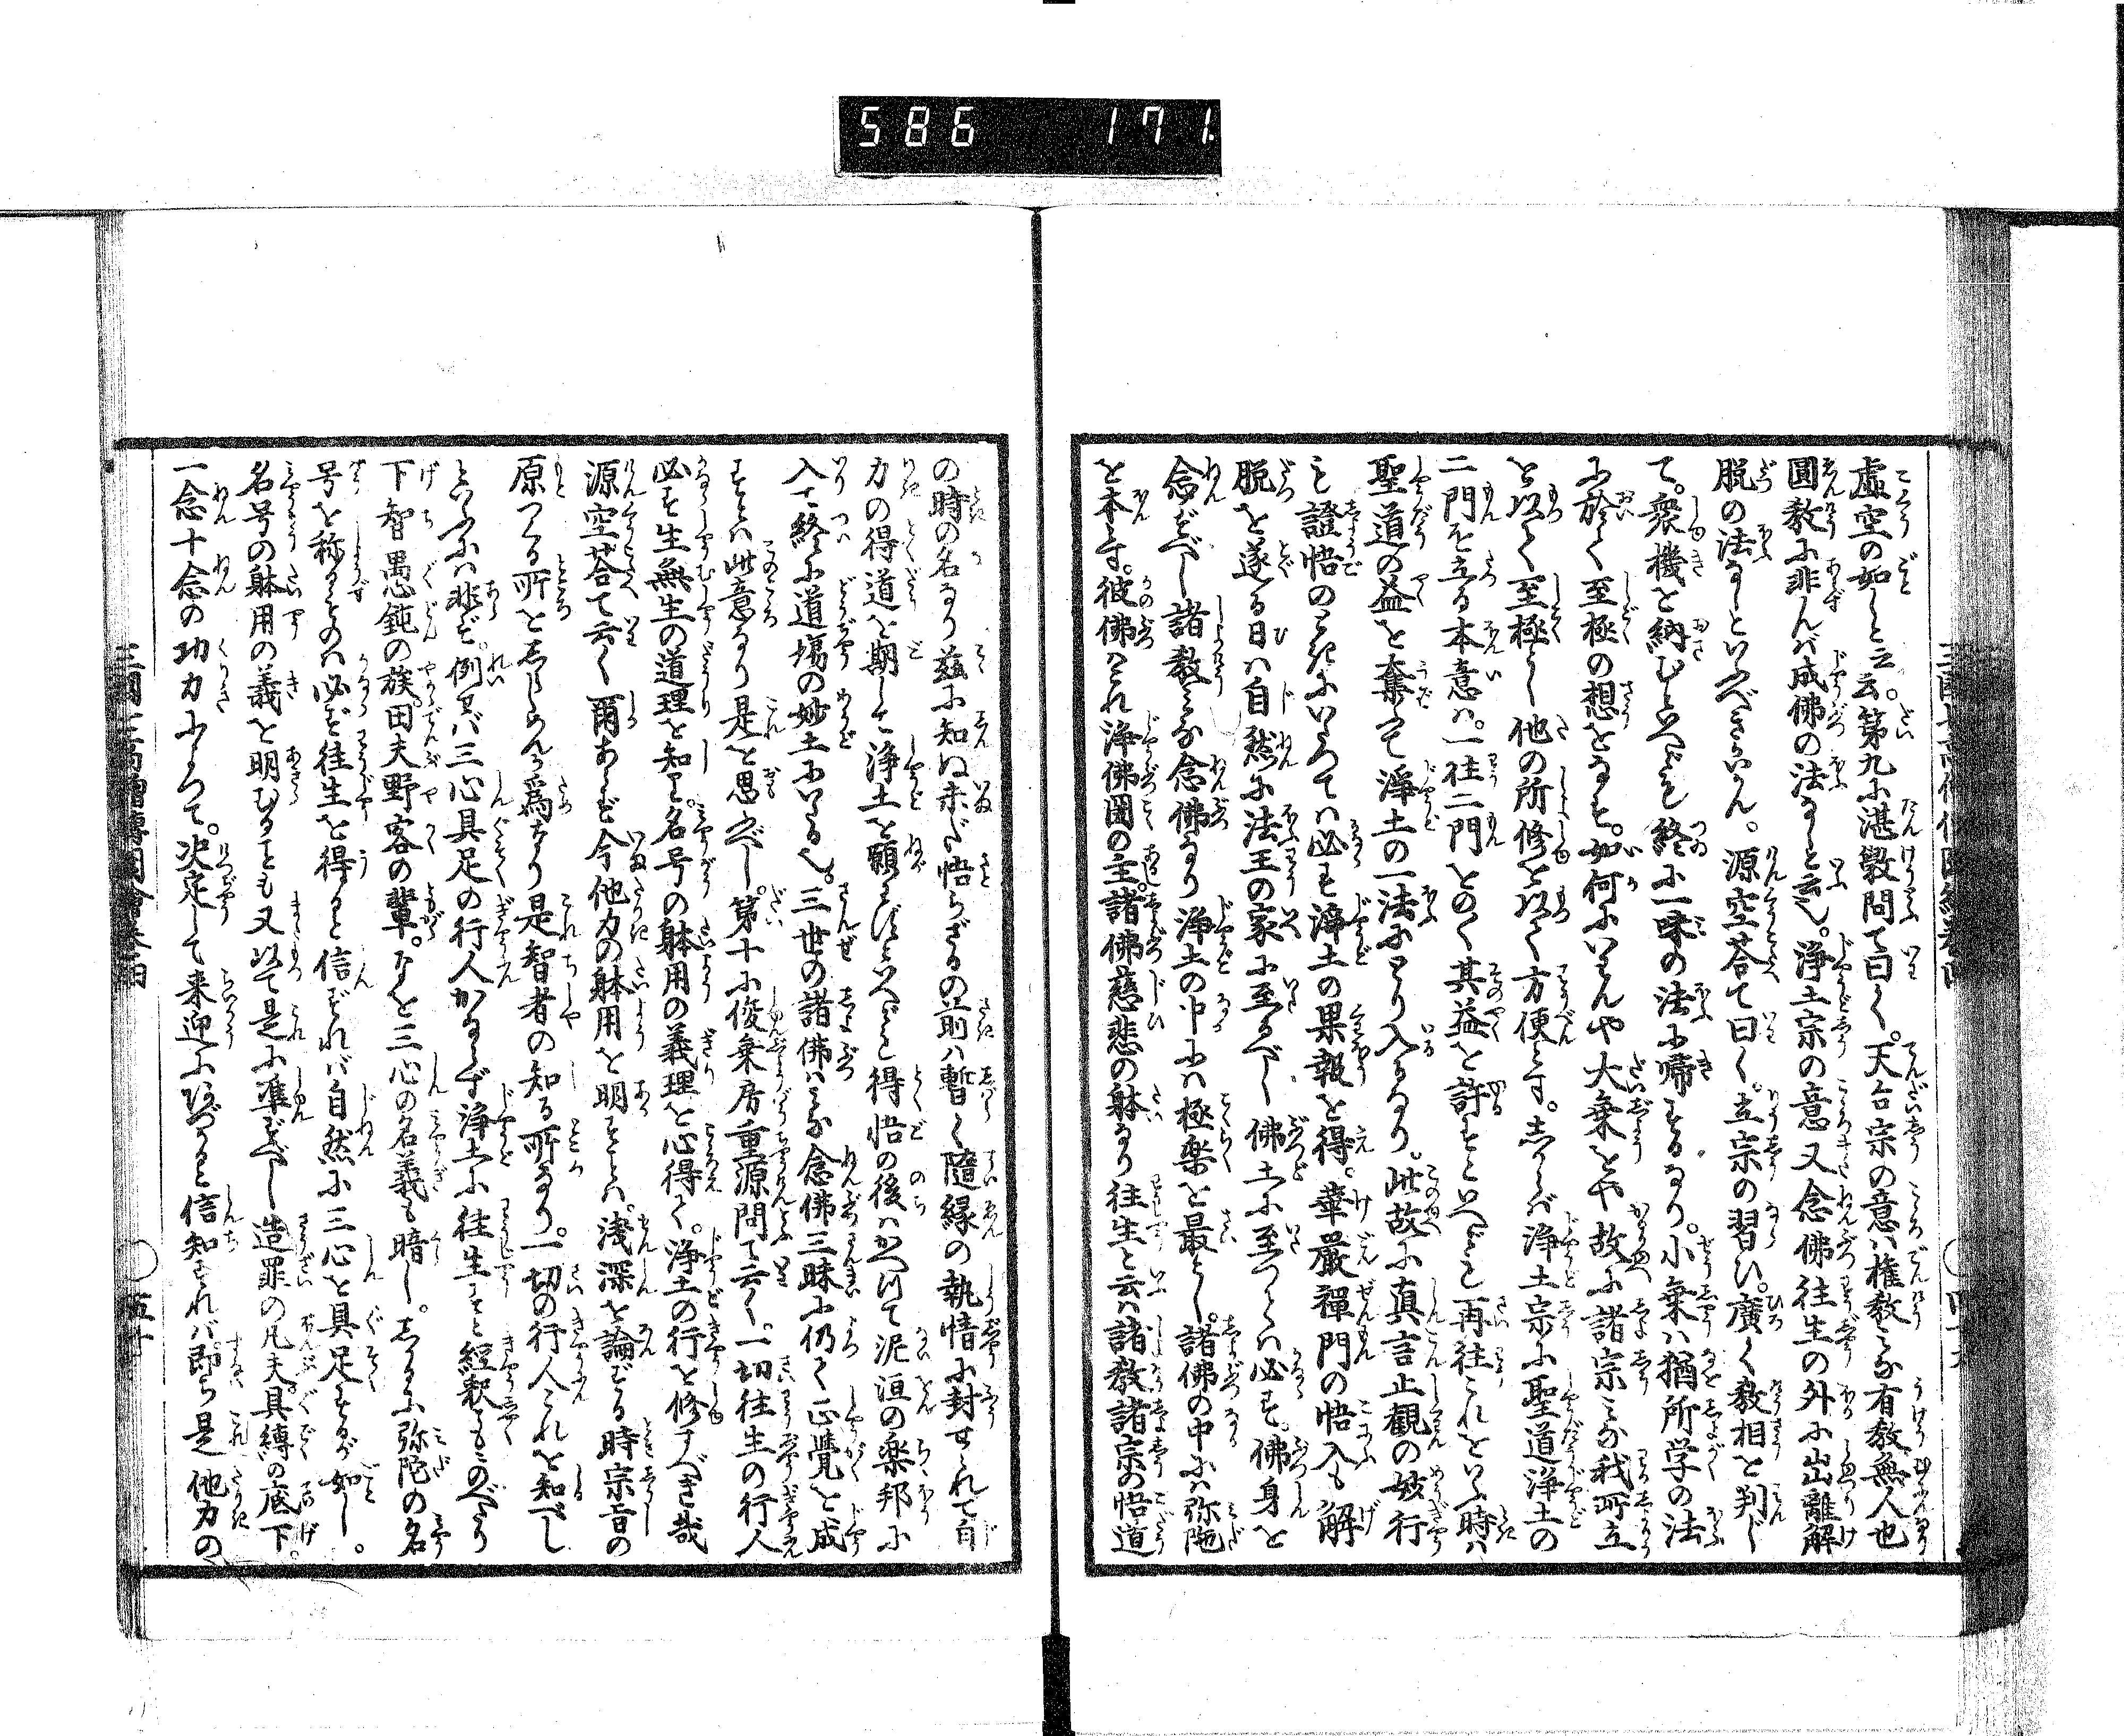 586 171
虚空の如しと云云。第九に湛斅問て曰く。天台宗の意は権教みな有教無人也
圓教に非んバ成佛の法なしと云也。浄土宗の意又念佛往生の外に出離解
脱の法なしといふべきらん。源空荅て曰く。立宗の習ひ。廣く教相を判じ
て。衆機を納むといへども終に一味の法に帰するなり。小乗ハ猶所学の法
に於て至極の想をなす。如何にいはんや大乗をや故に諸宗みな我所立
を以て至極とし他の所修を以て方便とす。しかれバ浄土宗に聖道浄土の
二門を立る本意ハ。一往二門をのく其益を許すといへども再往これをいふ時ハ
聖道の益を奪ふて浄土の一法にとり入るなり。此故に真言止観の妙行
も證悟のときにいたつてハ必も浄土の果報を得。華厳禅門の悟入も解
脱を遂る日ハ自然に法王の家に至るべし佛土に至つてハ必ず。佛身を
念ずべし諸教みな念佛なり浄土の中にハ極楽を最とし。諸佛の中にハ弥陀
を本とす。彼佛ハこれ浄佛國の主。諸佛慈悲の躰なり往生と云ハ諸教諸宗の悟道
の時の名なり茲に知ぬ未だ悟らざるの前ハ暫く随縁の執情に封せられて自
力の得道を期して浄土を願ハずといへども得悟の後ハかへつて泥洹の楽邦に
入て終に道場の妙土にいたる也。三世の諸佛ハみな念佛三昧に仍て正覚を成
すとハ此意なり是を思ふべし。第十に俊乗房重源問て云く。一切往生の行人
必ず生無生の道理を知り。名号の躰用の義理を心得て。浄土の行を修すべき哉
源空荅て云く爾あらず今他力の躰用を明すとハ。浅深を論ずる時宗旨の
原つく所をしらしめんが為なり是智者の知る所なり。一切の行人これを知べし
といふにハ非ず。例せバ三心具足の行人かならず浄土に往生すと経釈もこのべたり
下智愚鈍の族。田夫野客の輩。なを三心の名義も暗し。しかるに弥陀の名
号を称るものハ必ず往生を得ると信ずれバ自然に三心を具足するが如し。
名号の躰用の義を明むるとも又以て是に準ずべし造罪の凡夫。具縛の底下。
一念十念の功力によつて。決定して来迎にあづかると信知すれバ即ち是他力の